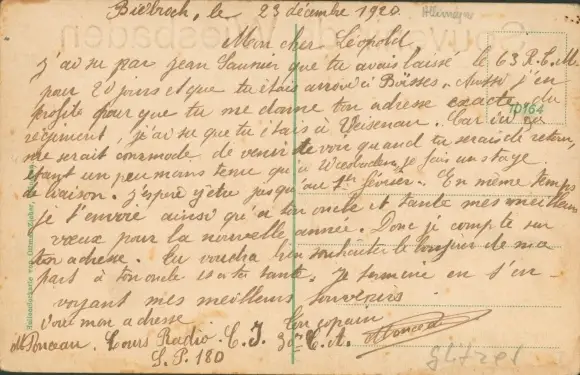 Biebrich, le 23 décembre 1920
Allemagne
Mon cher Léopold
j'ai su par Jean Saunier que tu avais laissé le 63 R.C.M.
pour 20 jours et que tu étais arrivé à Aussi j'en
profite pour que tu me donne ton adresse exacte du
régiment, j'ai su que tu étais à Weisenau. Car
me serait commode de venir te voir quand tu serais de retour,
étant un peu mans tenu qu'à Wiesbaden, je fais un stage
de liaison. j'espère y être jusqu'au 1er février. En même temps
je t'envoie ainsi qu'à ton oncle et tante mes meilleurs
vœux pour la nouvelle année. Donc je compte sur
ton adresse. Tu voudra bien souhaiter le bonjour de ma
part à ton oncle et ta tante. je termine en t'en-
voyant mes meilleurs souvenirs.
Voici mon adresse Ton copain
M Ponceau. Cours Radio. C.I. 30e C.A. Ponceau
S.P. 180
TD164